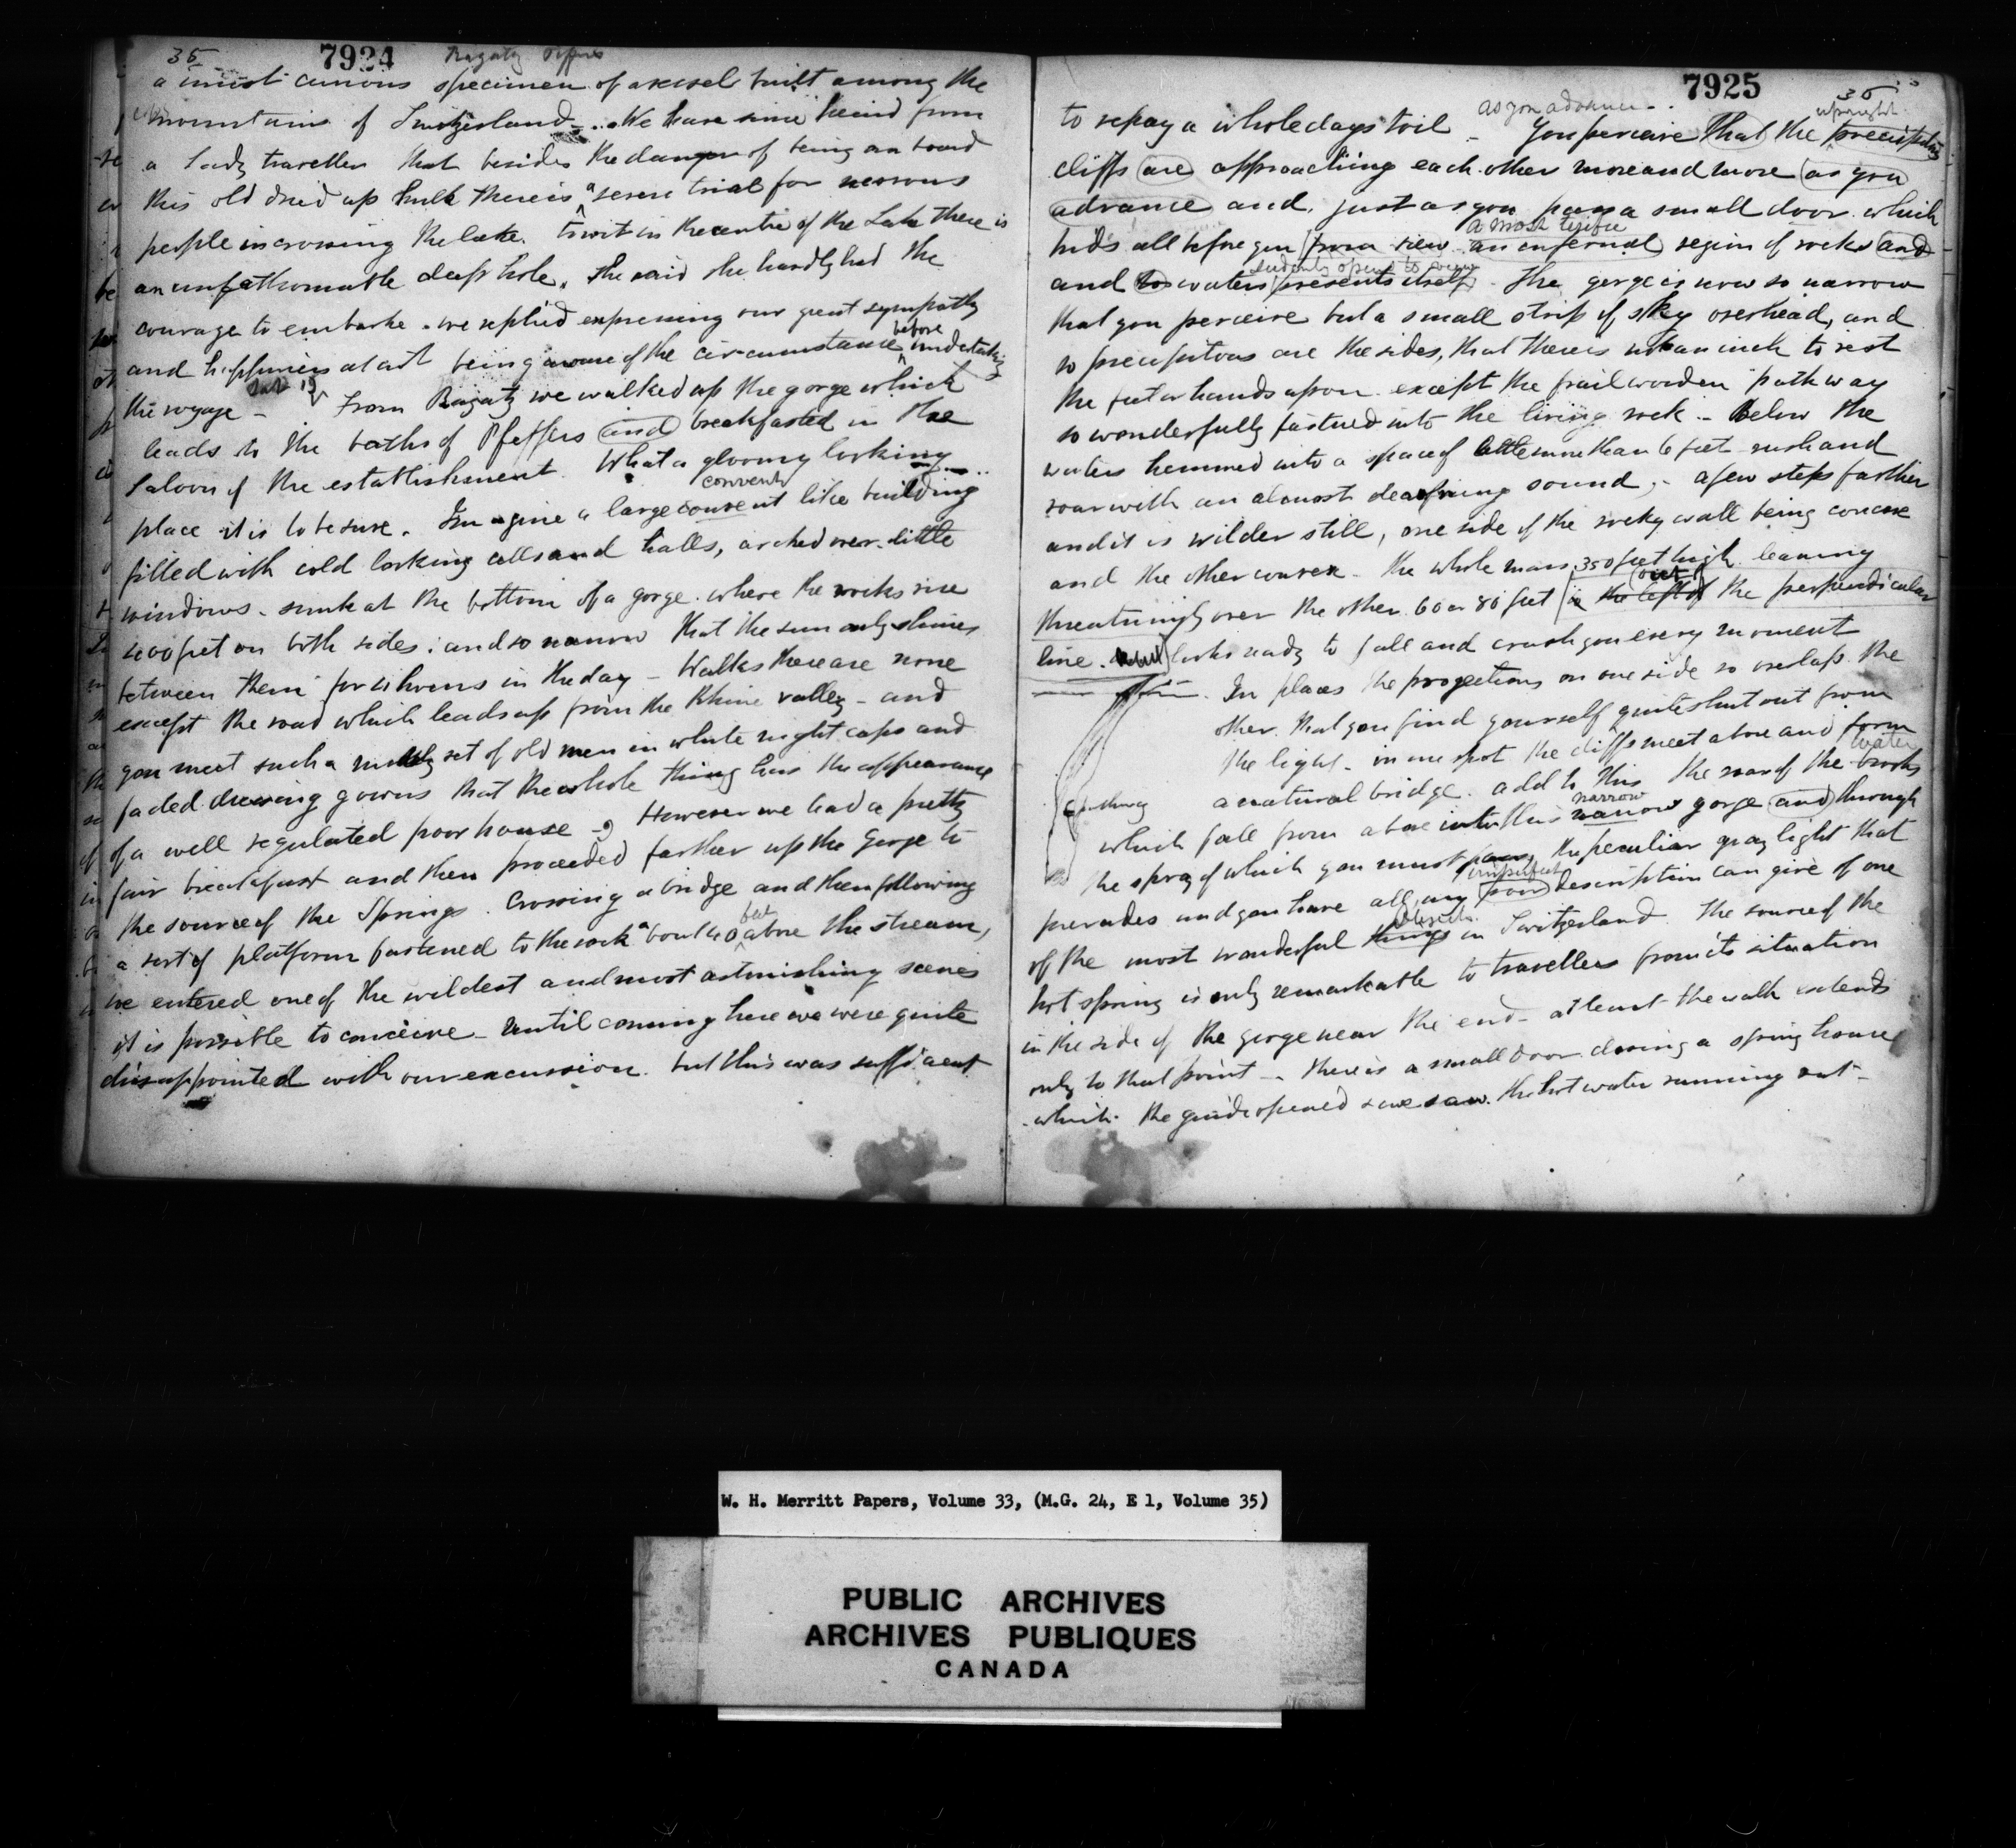 35
7924
Ragatz Pfeffers
a most curious specimen of a vessel built among the
mountains of Switzerland - . We have since heard from
a Lady traveller that besides the danger of being on board
this old dried up hulk there is a severe trial for nervous
people in crossing the lake. to wit in the centre of the Lake there is
an unfathomable deep hole. She said she hardly had the
courage to embark. we replied expressing our great sympathy
and happiness at not being aware of the circumstance before undertaking
the voyage - From Ragatz we walked up the gorge which
leads to the baths of Pfeffers and breakfasted in the
Saloon of the establishment. What a gloomy looking
place it is to be sure. Imagine a large convent convent like building
filled with cold looking cells and halls, arched over. little
windows - sunk at the bottom of a gorge. where the rocks rise
400 feet on both sides: and so narrow that the sun only shines
between them for 4 hours in the day - Walks there are none
except the road which leads up from the Rhine valley - and
you meet such a motly set of old men in white night caps and
faded dressing gowns that the whole thing has the appearance
of a well regulated poor house - However we had a pretty
fair breakfast and then proceeded farther up the Gorge to
the source of the Springs. Crossing a bridge and then following
a sort of platform fastened to the rock about 40 feet above the stream,
we entered one of the wildest and most astonishing scenes
it is possible to conceive - Until coming here we were quite
disappointed with our excursion. but this was sufficient
7925
36
to repay a whole days toil - as you advance - You perceive that the upright precipitous
cliffs are approaching each other more and more as you
advance and, just as you pass a small door which
hids all before you from view a most terific an infernal region of rocks and
and waters suddenly opens to view presents itself. The gorge is now so narrow
that you perceive but a small strip of sky overhead, and
so precipitous are the sides, that there is not an inch to rest
the feet or hands upon except the frail wooden pathway
so wonderfully fastned into the living rock - Below the
waters hemmed into a space of little more than 6 feet rush and
roar with an almost deafning sound; - a few steps farther
and it is wilder still, one side of the rocky wall being concave
and the other convex - the whole mass 350 feet high leaning
threatningly over the other 60 or 80 feet is the left of out the perpendicular
line. looks ready to fall and crush you every moment
In places the projections on one side so overlap the
other. that you find yourself quite shut out from
the light - in one spot the cliffs meet above and form
a natural bridge. add to this the roar of the water brooks
which fall from above into this narrow narrow gorge and through
the spray of which you must pass, the peculiar gray light that
pervades and you have all my imperfect poor description can give of one
of the most wonderful objects things in Switzerland. The source of the
hot spring is only remarkable to travellers from its situation
in the side of the gorge near the end - at least the walk extends
only to that point - there is a small door closing a spring house
which the guide opened & we saw the hot water running out -
W. H. Merritt Papers, Volume 33, (M.G. 24, E 1, Volume 35)
PUBLIC ARCHIVES
ARCHIVES PUBLIQUES
CANADA